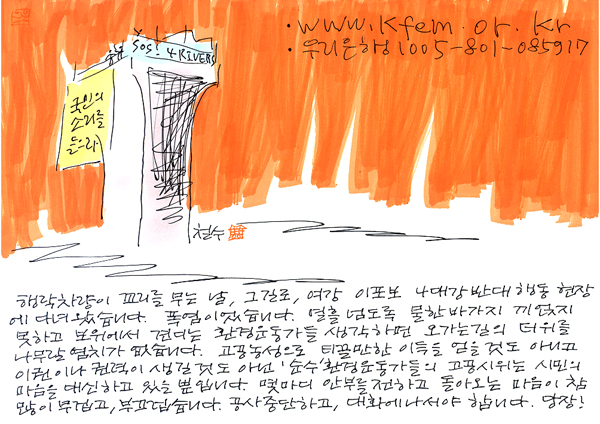 · www.kfem.or.kr
· 우리은행 1005-801-085917
SOS! 4 RIVERS
국민의
소리를
들으라!
철수
행락차량이 꼬리를 무는 날, 그길로, 여강 이포보 4대강 반대 행동 현장
에 다녀왔습니다. 폭염이었습니다. 열흘 넘도록 물한바가지 끼얹지
못하고 보위에서 견디는 환경운동가들 생각하면 오가는길의 더위를
나무랄 염치가 없습니다. 고공농성으로 티끌만한 이득을 얻을 것도 아니고
이권이나 권력이 생길 것도 아닌 '순수'환경운동가들의 고공시위는 시민의
마음을 대신하고 있을 뿐입니다. 몇마디 안부를 전하고 돌아오는 마음이 참
많이 무겁고, 부끄럽습니다. 공사중단하고, 대화에 나서야 합니다. 당장!